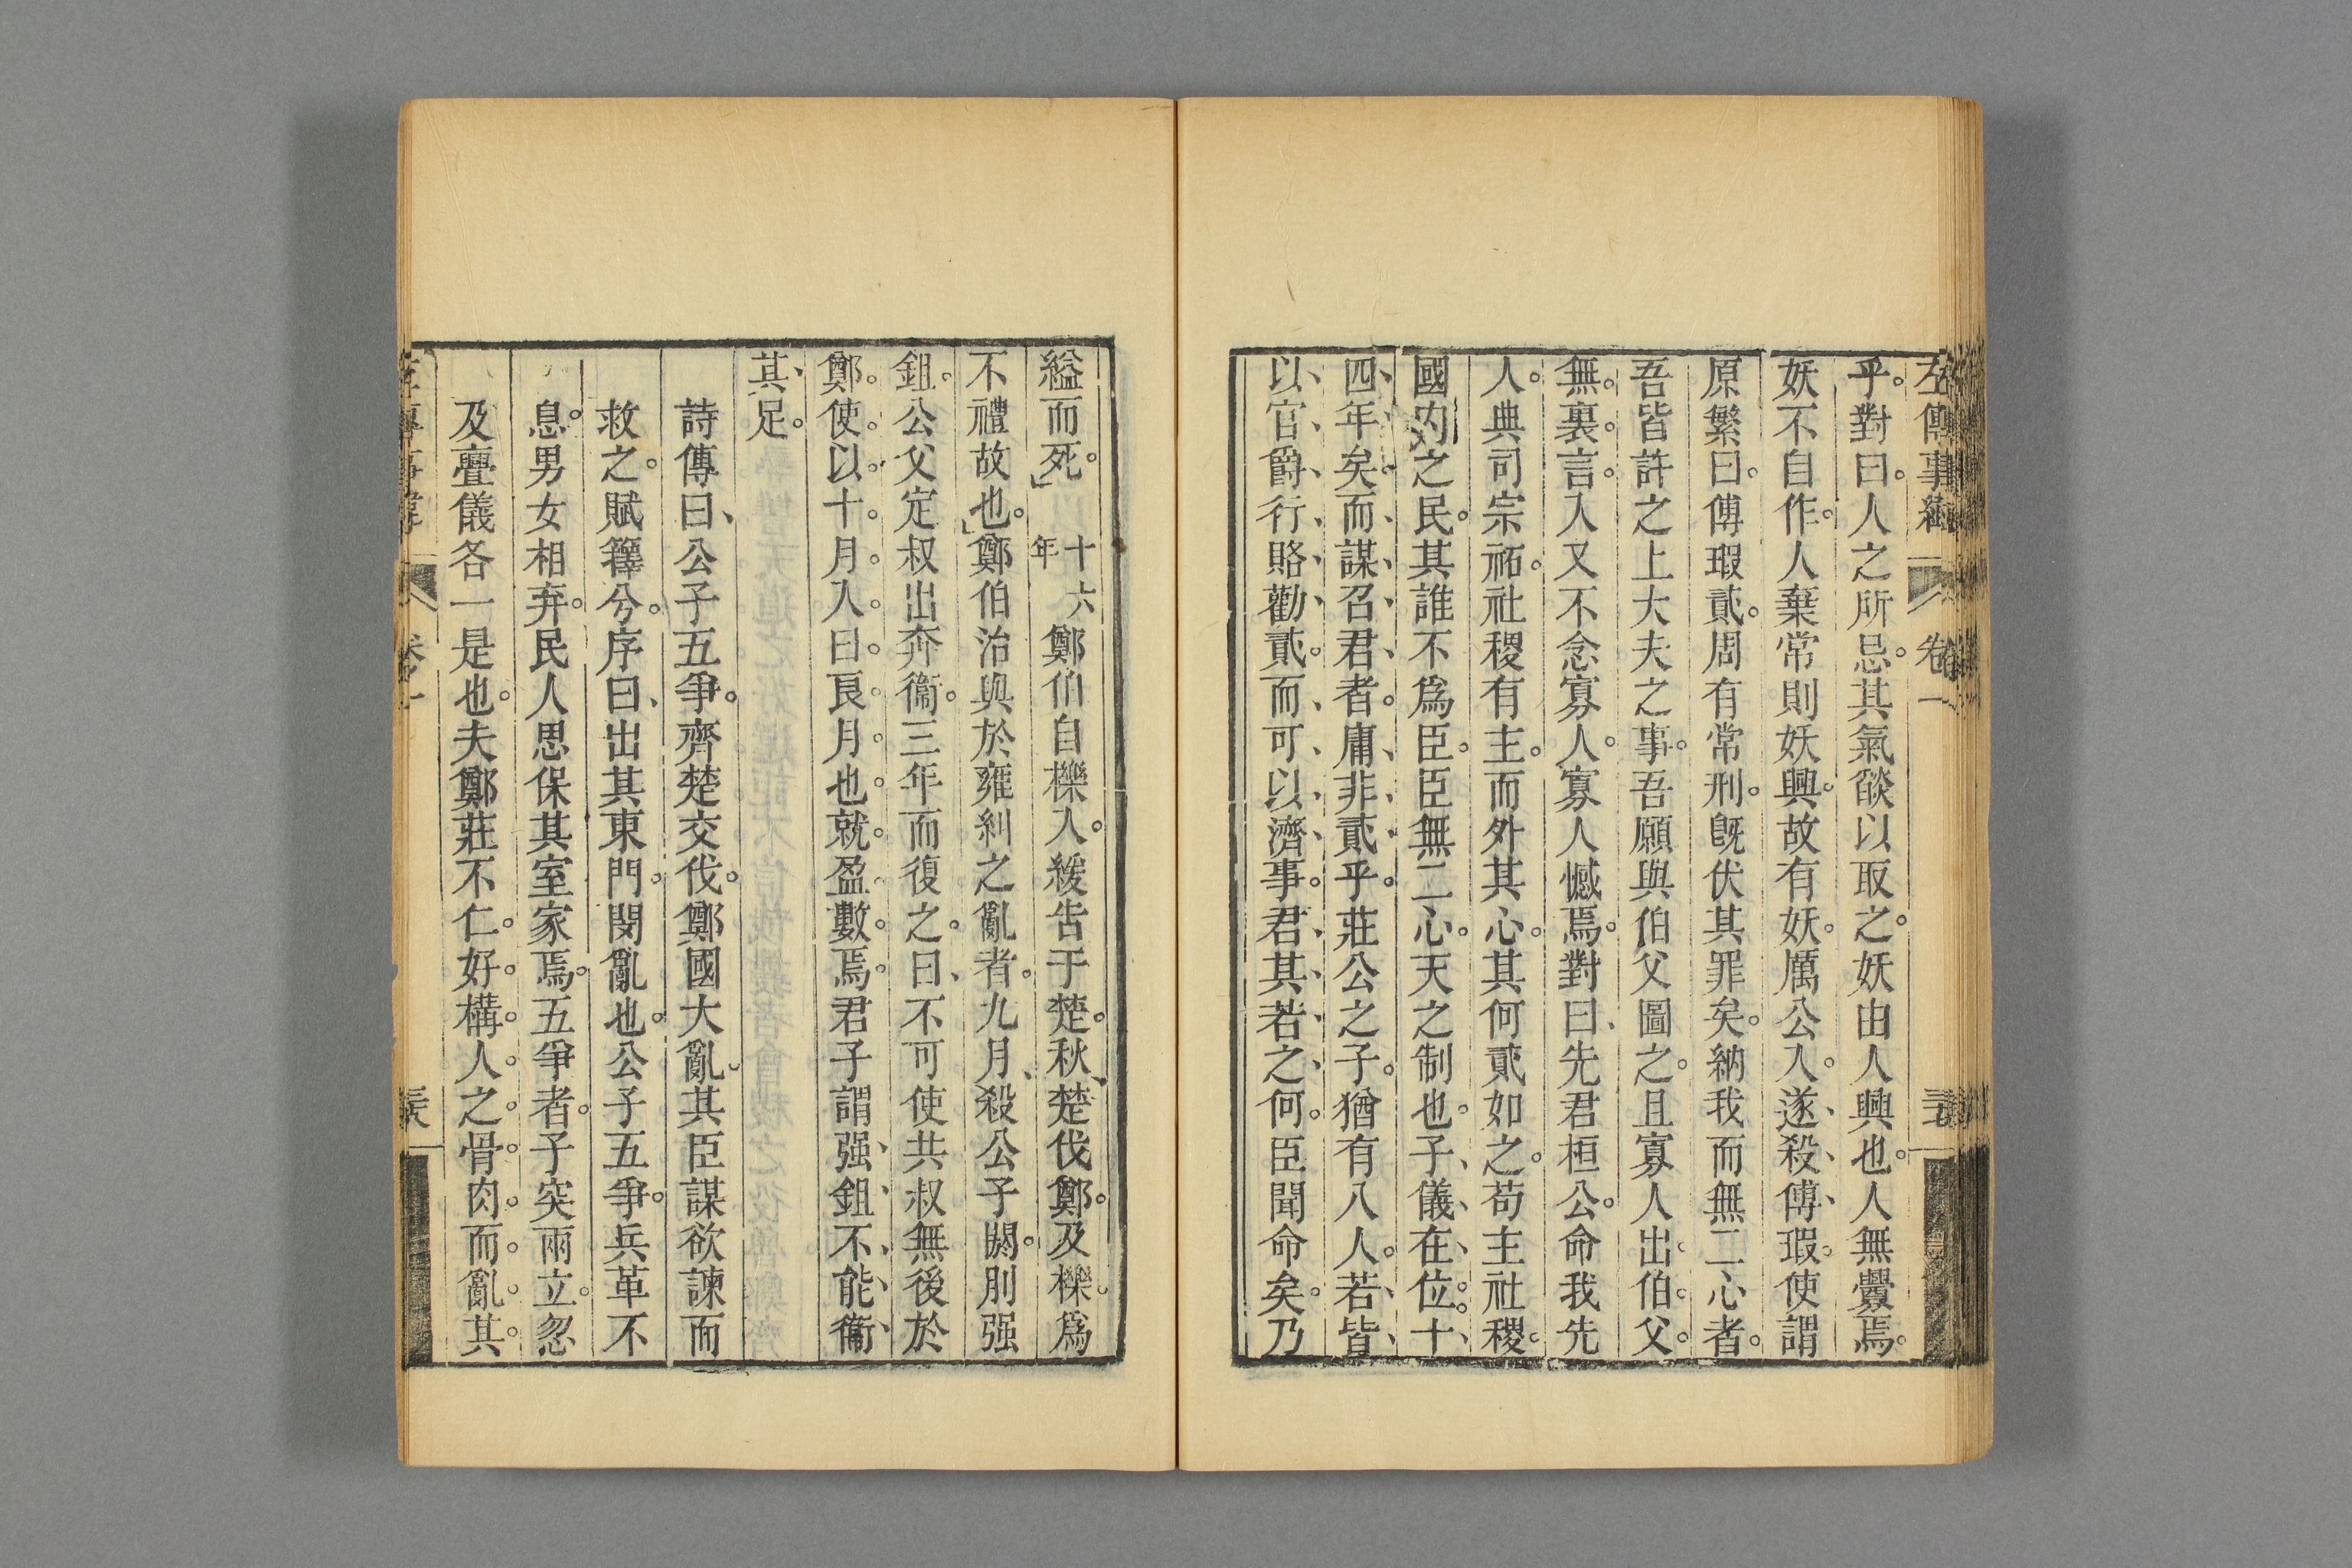 左傳事緯 卷一
乎。對曰。人之所忌。其氣燄以取之。妖由人興也。人無釁焉。
妖不自作。人棄常則妖興。故有妖。厲公入。遂、殺、傅、瑕。使謂
原繁曰。傅瑕貳。周有常刑。旣伏其罪矣。納我而無二心者。
吾皆許之上大夫之事。吾願與伯父圖之。且寡人出。伯父。
無。裏。言。入又不念寡人。寡人憾焉。對曰、先君桓公。命我先
人。典司宗祏。社稷有主。而外其心。其何貳如之。苟主社稷。
國内之民。其誰不爲臣。臣無二心。天之制也。子、儀、在、位。十、
四、年、矣。而、謀、召、君、者。庸、非、貳、乎。莊公之子。猶有八人。若、皆、
以、官、爵、行、賂、勸、貳。而、可、以、濟、事。君、其、若、之、何。臣聞命矣。乃
縊而死。」十六年鄭伯自櫟入。緩告于楚。秋、楚伐鄭。及櫟。爲
不禮故也。」鄭伯治與於雍糾之亂者。九月、殺公子閼。刖强
鉏。公父定叔出奔衞。三年而復之。曰、不可使共叔無後於
鄭。使。以。十。月。入。曰。良。月。也。就。盈。數。焉。君子謂强、鉏、不、能、衞、
其、足。
詩傳曰、公子五爭。齊楚交伐。鄭國大亂。其臣謀欲諫而
救之。賦籜兮。序曰、出其東門。閔亂也。公子五爭。兵革不
息。男女相弃。民人思保其室家焉。五爭者。子突兩立。忽
及亹儀各一是也。夫鄭莊不仁。好。構。人。之。骨。肉。而。亂。其。